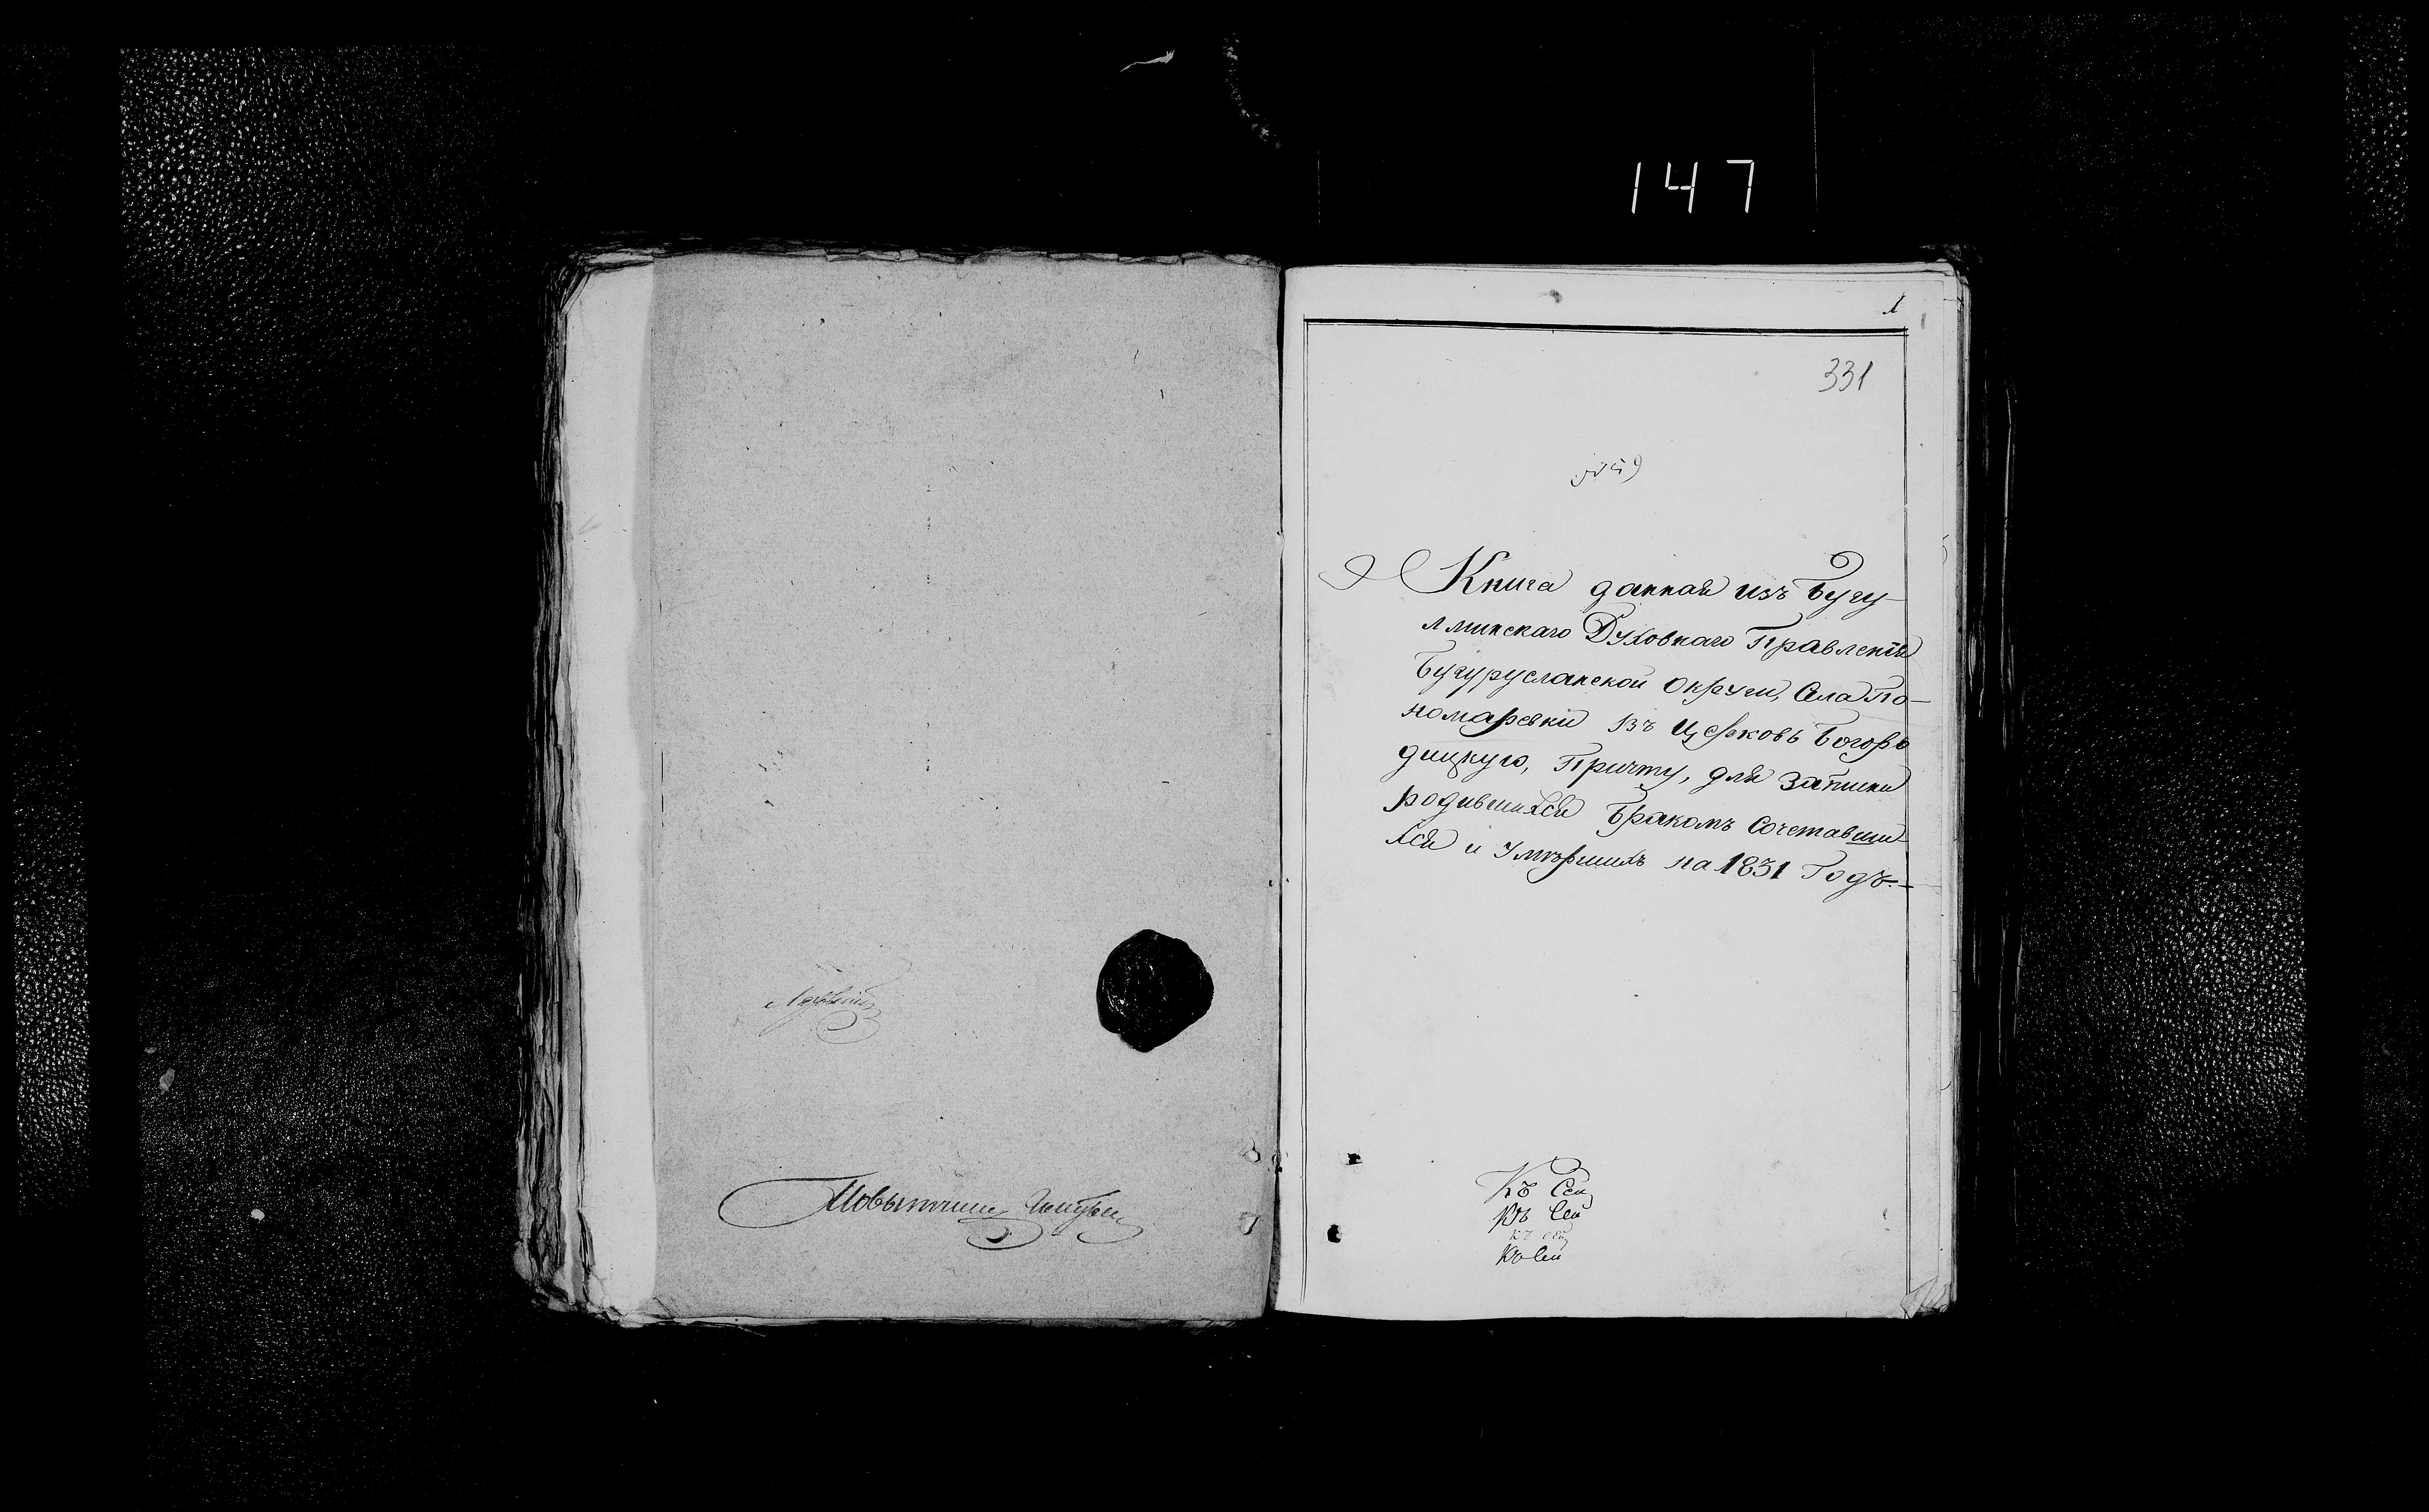 147
1
331
Книга данная изъ Бугу-
лминскаго Духовнаго Правленія
Бугурусланской округи, Села По-
номаревки въ церковь Богоро
дицкую, Причту, для записки
родившихся Бракомъ Сочетавши-
хся и Умѣршихъ на 1831 Годъ.
Повытчикъ
Къ Сей
Къ Сей
Къ Сей
Къ Сей